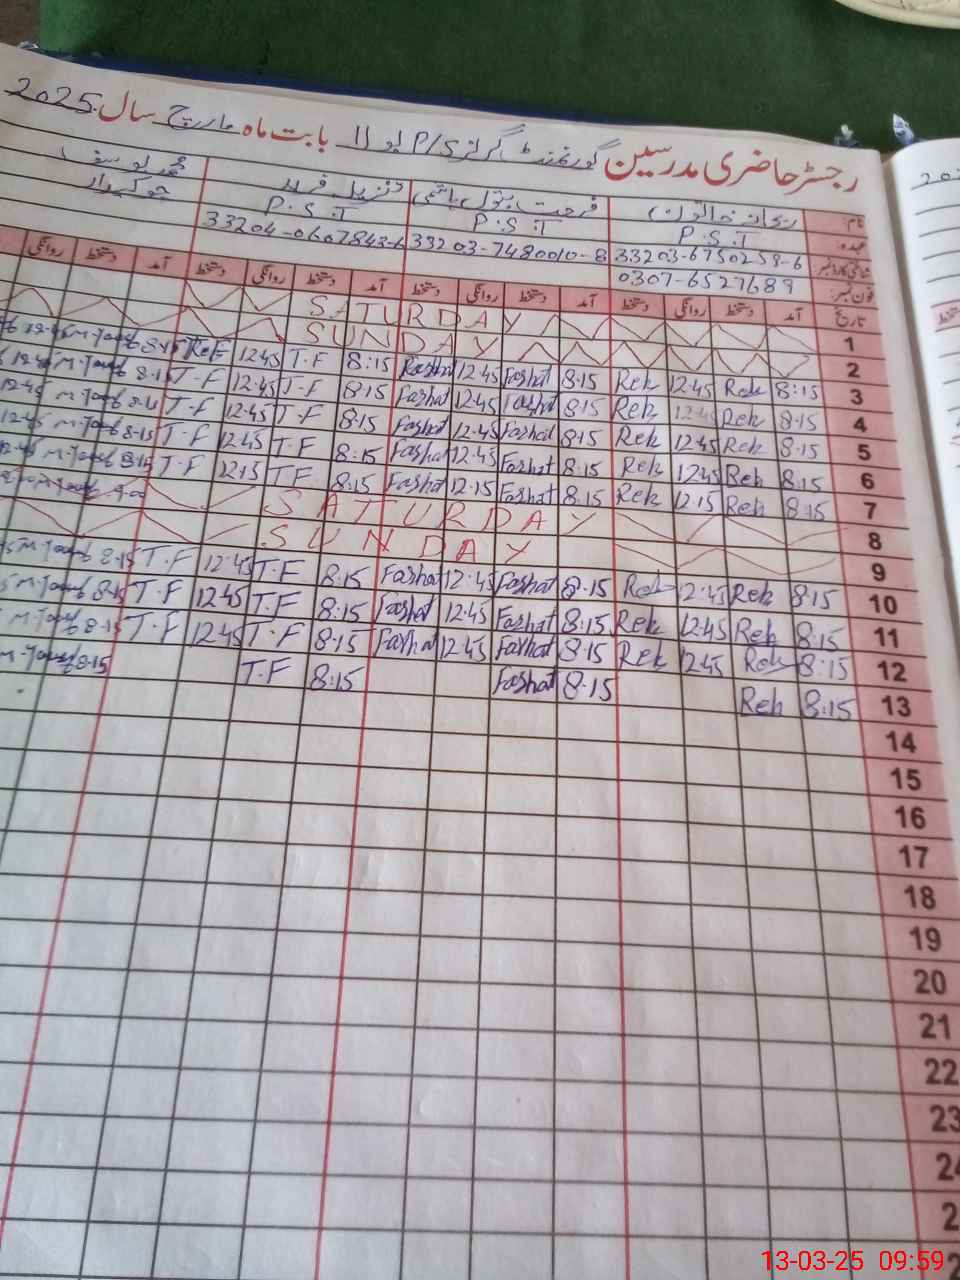 رجسٹر حاضری مدرسین گورنمنٹ گرلز P/S لو 11 بابت ماہ مارچ سال 2025
نام: ریحانہ خاتون فرحت بتول ہاشمی تنزیلہ فرید محمد یوسف
عہدہ: P.S.T P.S.T P.S.T چوکیدار
شناختی کارڈ نمبر 33203-6750259-6 33203-7480010-8 33204-0607843-6
فون نمبر: 0307-6527689
تاریخ آمد دستخط روانگی دستخط آمد دستخط روانگی دستخط آمد دستخط روانگی دستخط آمد دستخط روانگی
1 SATURDAY
2 SUNDAY
3 8:15 Reh 12:45 Reh 8:15 Farhat 12:45 Farhat 8:15 T.F 12:45 8:15 M-Yousaf 12:45
4 8:15 Reh 12:45 Reh 8:15 Farhat 12:45 Farhat 8:15 T.F 12:45 T-F 8:15 M-Yousaf 12:45
5 8:15 Reh 12:45 Reh 8:15 Farhat 12:45 Farhat 8:15 T.F 12:45 T-F 8:15 M-Yousaf 12:45
6 8:15 Reh 12:45 Reh 8:15 Farhat 12:45 Farhat 8:15 T.F 12:45 T-F 8:15 M-Yousaf 12:45
7 8:15 Reh 12:15 Reh 8:15 Farhat 12:15 Farhat 8:15 TF 12:15 T-F 8:15 M-Yousaf
8 SATURDAY
9 SUNDAY
10 8:15 Reh 12:45 Reh 8:15 Farhat 12:45 Farhat 8:15 T.F 12:45 T.F 8:15 M-Yousaf
11 8:15 Reh 12:45 Reh 8:15 Farhat 12:45 Farhat 8:15 T.F 12:45 T.F 8:15 M-Yousaf
12 8:15 Reh 12:45 Reh 8:15 Farhat 12:45 Farhat 8:15 T.F 12:45 T.F 8:15 M-Yousaf
13 8:15 Reh 8:15 Farhat 8:15 T.F 8:15 M-Yousaf
14
15
16
17
18
19
20
21
22
23
13-03-25 09:59